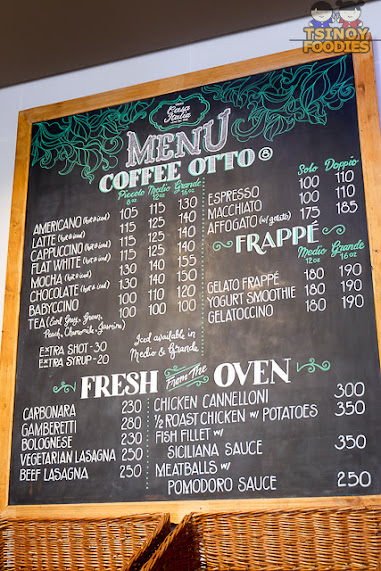 TSINOY
FOODIES
Casa Italia
MENU
COFFEE OTTO 8
Piccolo 8 oz Medio 12 oz Grande 16 oz
AMERICANO (hot & iced) 105 115 130
LATTE (hot & iced) 115 125 140
CAPPUCCINO (hot & iced) 115 125 140
FLAT WHITE (hot & iced) 115 125 140
MOCHA (hot & iced) 130 140 155
CHOCOLATE (hot & iced) 130 140 150
BABYCCINO 100 110 120
TEA (Earl Grey, Green, 100 100 100
Peach, Chamomile, Jasmine)
EXTRA SHOT - 30
EXTRA SYRUP - 20
Iced available in
Medio & Grande
Solo Doppio
ESPRESSO 100 110
MACCHIATO 100 110
AFFOGATO (w/ gelato) 175 185
FRAPPÉ
Medio 12 oz Grande 16 oz
GELATO FRAPPÉ 180 190
YOGURT SMOOTHIE 180 190
GELATOCCINO 180 190
FRESH From The OVEN
CARBONARA 230
GAMBERETTI 280
BOLOGNESE 230
VEGETARIAN LASAGNA 250
BEEF LASAGNA 250
CHICKEN CANNELLONI 300
1/2 ROAST CHICKEN w/ POTATOES 350
FISH FILLET w/
SICILIANA SAUCE 350
MEATBALLS w/
POMODORO SAUCE 250